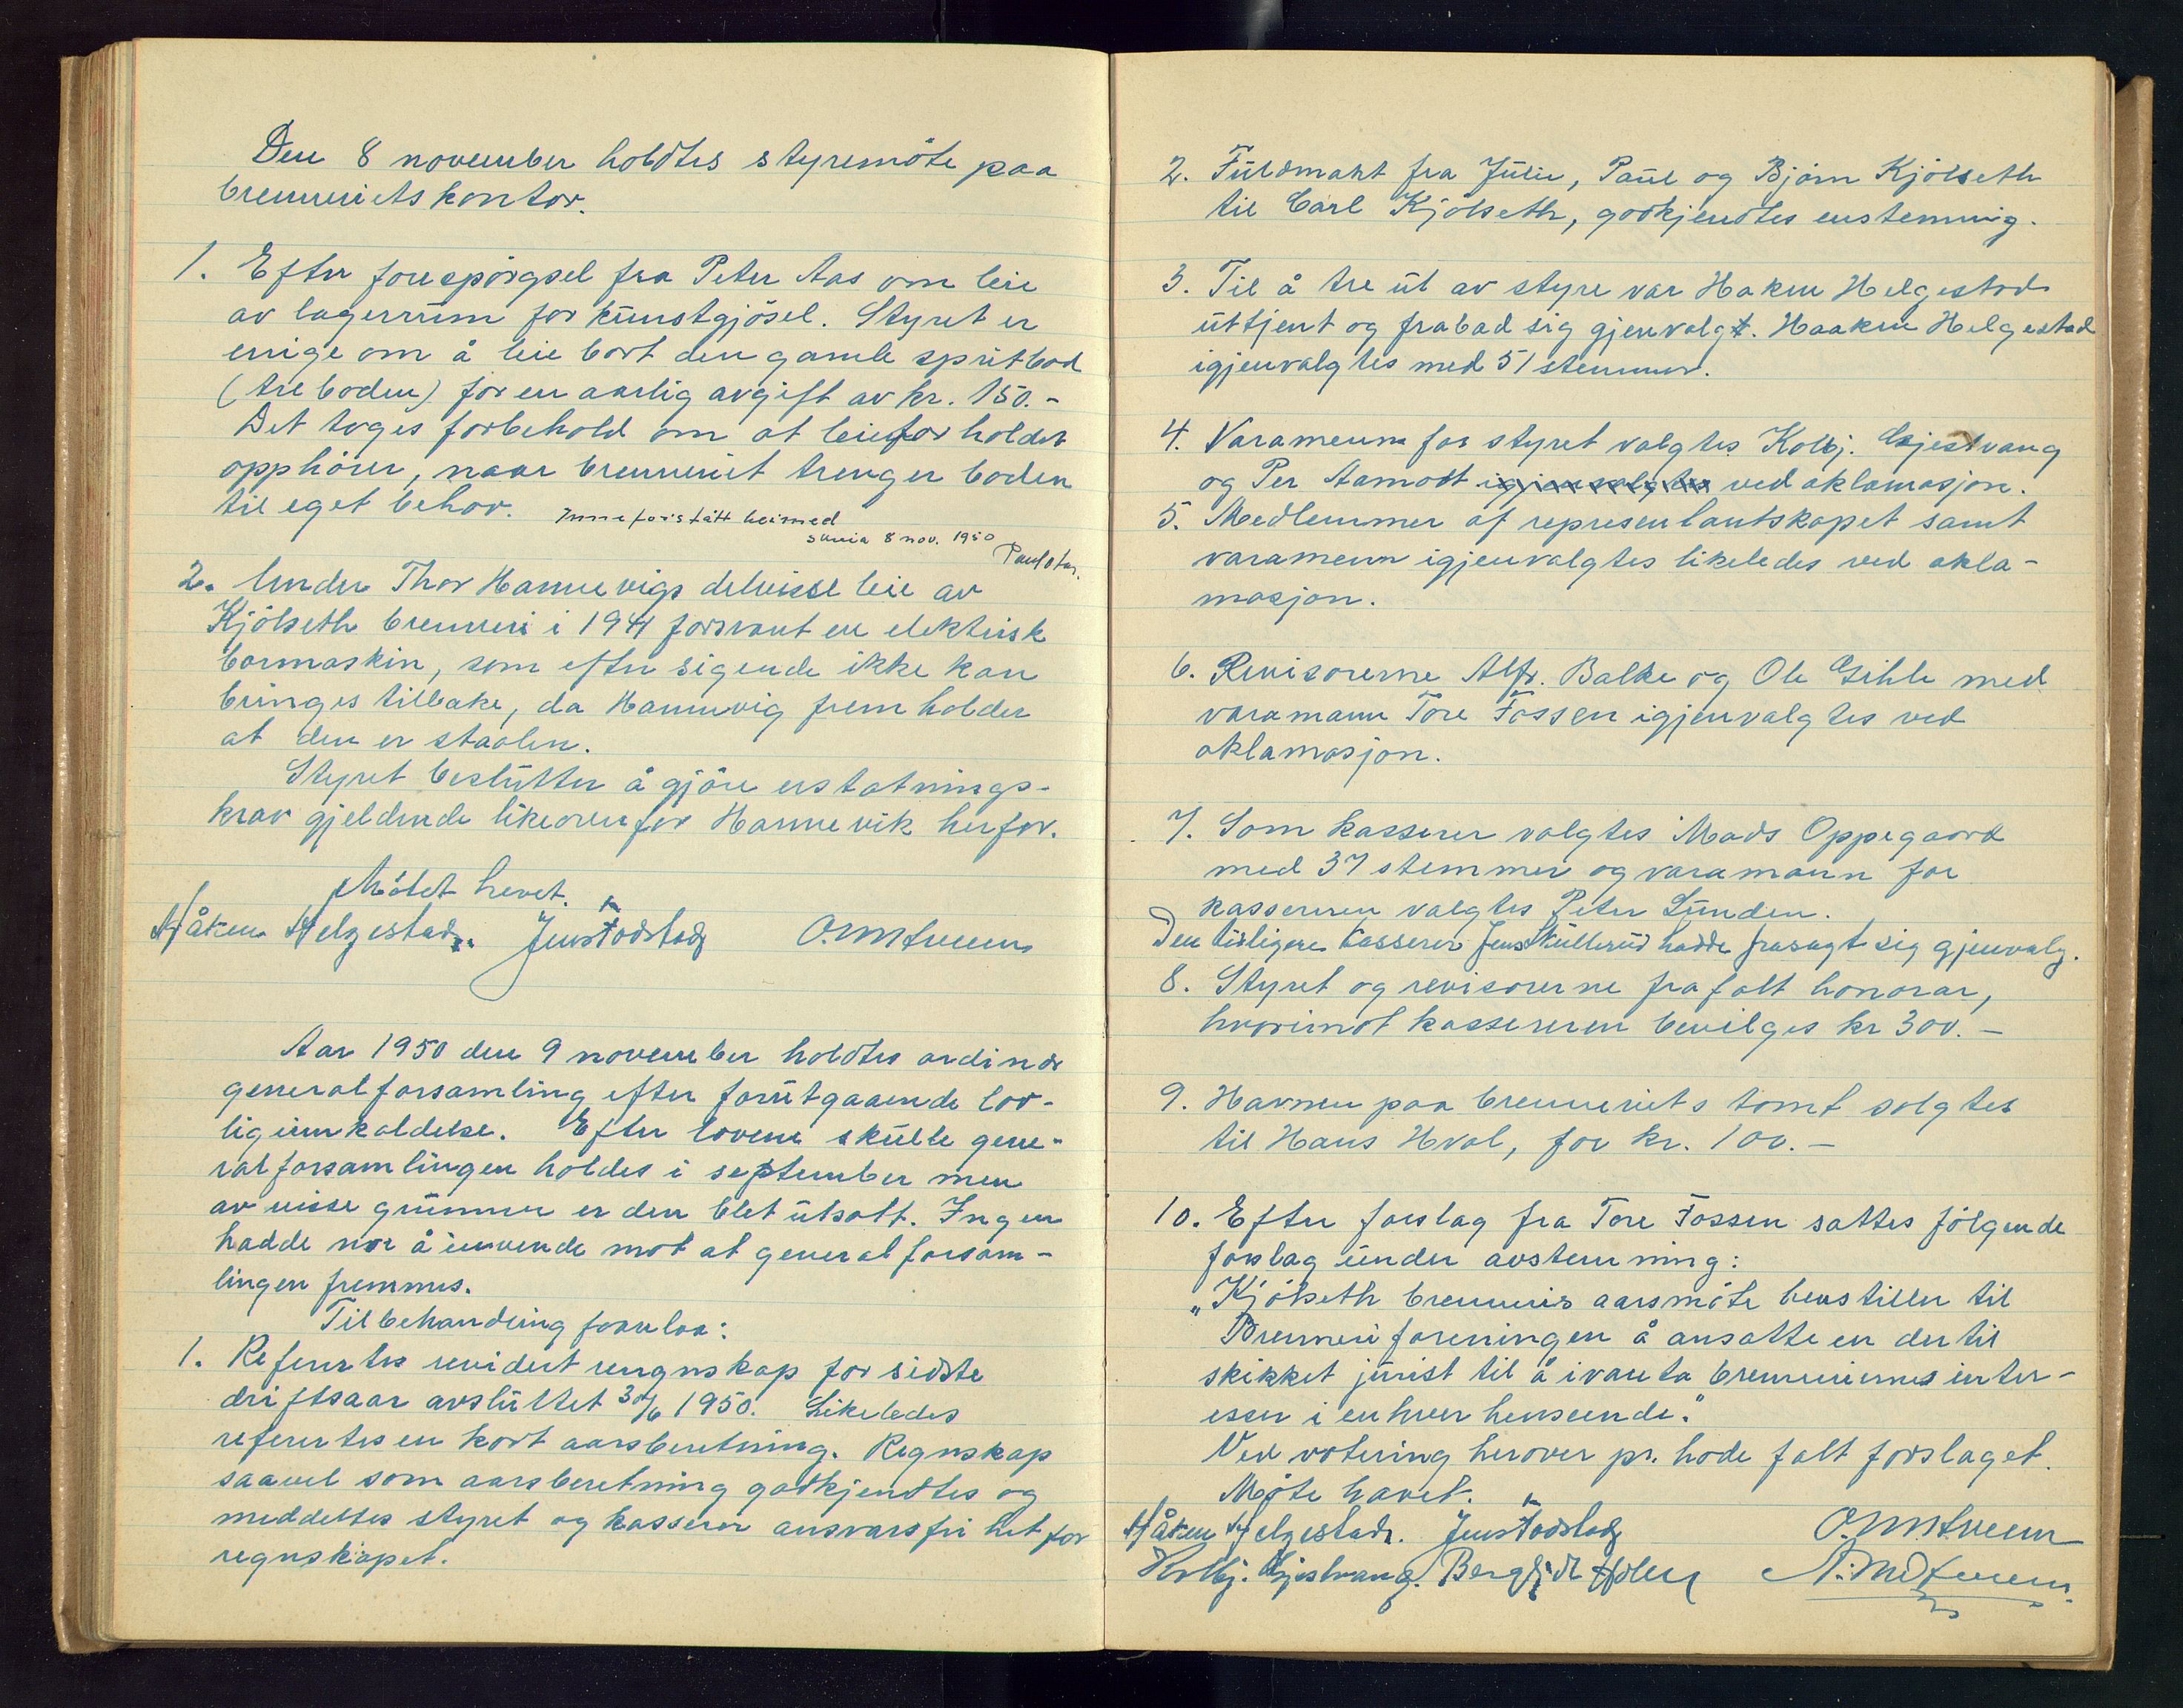 Den 8 november holdtes styremöte paa
brenneriets kontor.
1. Efter forespörgsel fra Peter Aas om leie
av lagerrum for kunstgjösel. Styret er
enige om å leie bort den gamle spritbod
(treboden) for en aarlig avgift av kr. 150.-
Det toges forbehold om at leieforholdet
opphörer, naar brenneriet trenger boden
til eget behov.
Inneforstått hermed
8 nov. 1950
2. Under Thor Hannevigs delvisse leie av
Kjölseth brenneri i 1941 forsvant en elektrisk
bormaskin, som efter sigende ikke kan
bringes tilbake, da Hannevig fremholder
at den er staalen.
Styret beslutter å gjöre erstatnings-
krav gjeldende likeovenfor Hannevik herfor.
Mötet hevet.
Håken Helgestad. Jens Todstad
Aar 1950 den 9 november holdtes ordinær
generalforsamling efter forutgaaende lov-
lig innkaldelse. Efter lovene skulle gene-
ralforsamlingen holdes i september men
av visse grunner er den blet utsatt. Ingen
hadde nor å innvende mot at generalforsam-
lingen fremmes.
Til behandling forelaa:
1. Refertes revidert rengnskap for sidste
driftsaar avsluttet 30/6 1950. Likeledes
refertes en kort aarsberetning. Regnskap
saavel som aarsberetning godkjendtes og
meddeltes styret og kasserer ansvarsfrihet for
regnskapet.
2. Fuldmakt fra Julie, Paul og Björn Kjölseth
til Carl Kjölseth, godkjendtes enstemmig.
3. Til å tre ut av styre var Haken Helgestad
uttjent og frabad sig gjenvalgt. Haaken Helgestad
igjenvalgtes med 51 stemmer.
4. Varamenn for styret valgtes Kolbj. Gjestvang
og Per Aamodt igjenvalgtes ved aklamasjon.
5. Medlemmer af representantskapet samt
varamenn igjenvalgtes likeledes ved akla-
masjon.
6. Revisorerne Alfr. Balke og Ole Gihle med
varamann Tore Fossen igjenvalgtes ved
aklamasjon.
7. Som kasserer valgtes Mads Oppegaard
med 37 stemmer og varamann for
kassereren valgtes Peter Lunden.
Den tidligere kasserer Jens Skullerud hadde frasagt sig gjenvalg.
8. Styret og revisorerne frafalt honorar,
hvorimot kassereren bevilges kr 300.-
9. Havnen paa brenneriets tomt solgtes
til Hans Hval, for kr. 100.-
10. Efter forslag fra Tore Fossen sattes fölgende
forslag under avstemning:
"Kjölseth brenneris aarsmöte henstiller til
Brenneriforeningen å ansatte en dertil
skikket jurist til å ivareta brenneriernes inter-
esser i enhver henseende."
Ved votering herover pr. hode falt forslaget.
Möte hævet.
Håken Helgestad. Jens Todstad
Kolbj. Gjestvang. Bergljot Holen